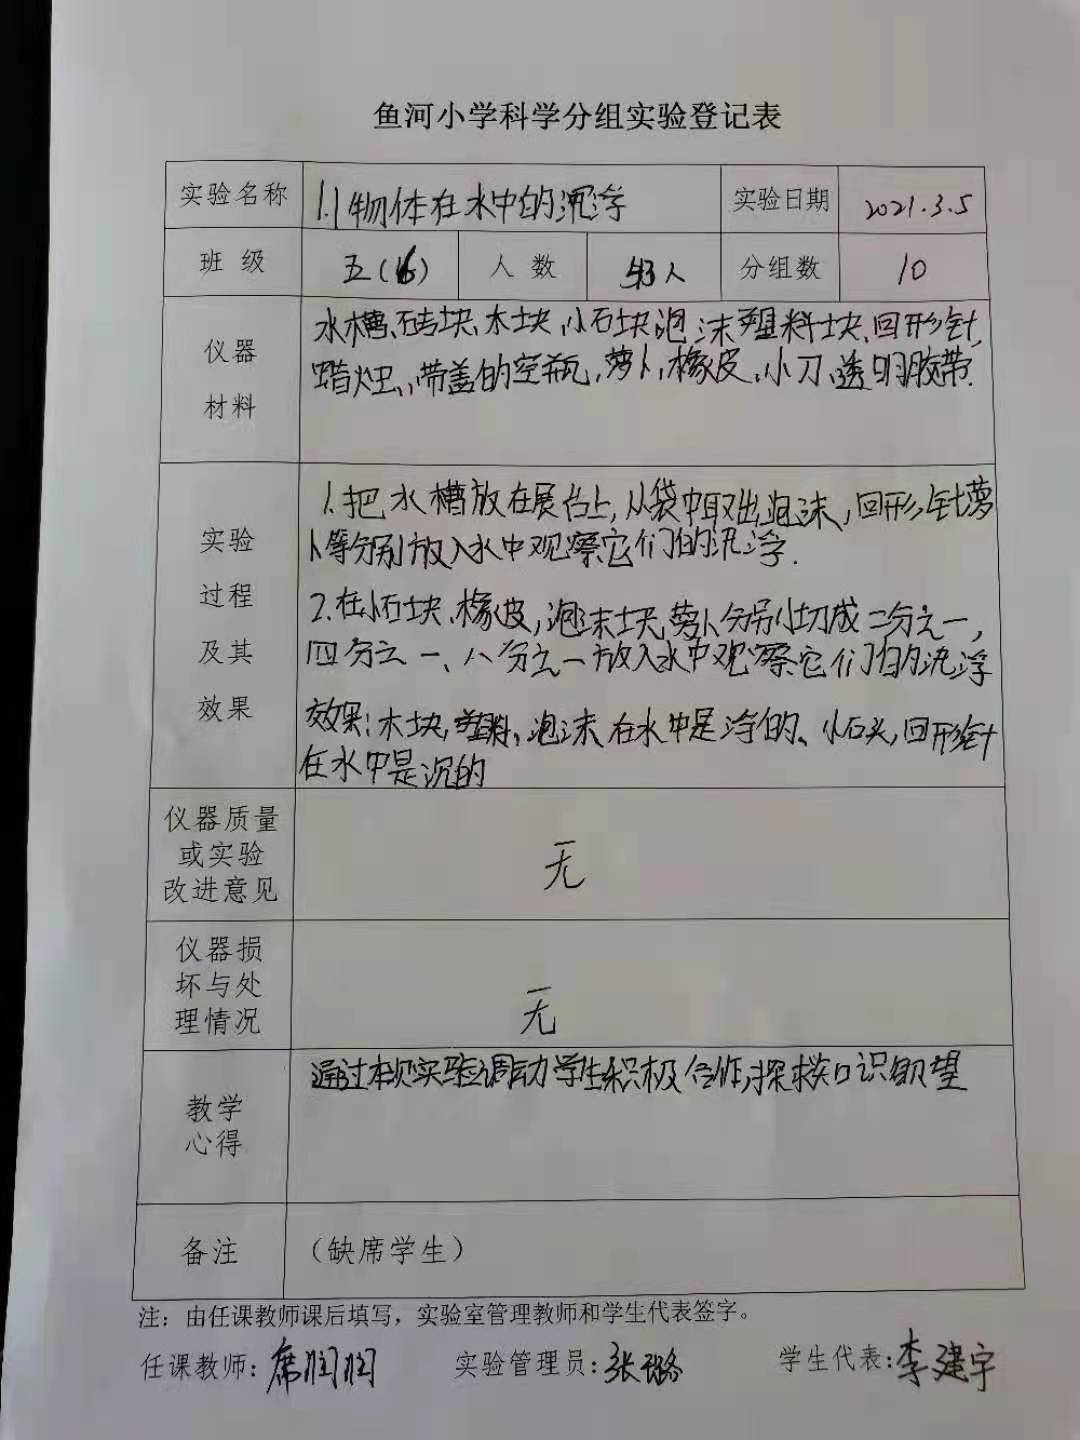 鱼河小学科学分组实验登记表
实验名称 1.1物体在水中的沉浮 实验日期 2021.3.5
班 级 五(6) 人 数 43人 分组数 10
仪器
材料
水槽、砖块、木块、小石块泡沫塑料块、回形针,
蜡烛、带盖的空瓶,萝卜,橡皮、小刀、透明胶带.
实验
过程
及其
效果
1.把水槽放在展台上,从袋中取出泡沫,回形针萝
卜等分别放入水中观察它们的沉浮.
2.在小石块、橡皮,泡沫块、萝卜分别切成二分之一,
四分之一、八分之一放入水中观察它们的沉浮
效果:木块,塑料、泡沫、在水中是浮的、小石头,回形针
在水中是沉的
仪器质量
或实验
改进意见
无
仪器损
坏与处
理情况
无
教学
心得
通过本次实验调动学生积极合作,探求知识欲望
备注 (缺席学生)
注:由任课教师课后填写,实验室管理教师和学生代表签字。
任课教师:席润润 实验管理员:张璐 学生代表:李建宇